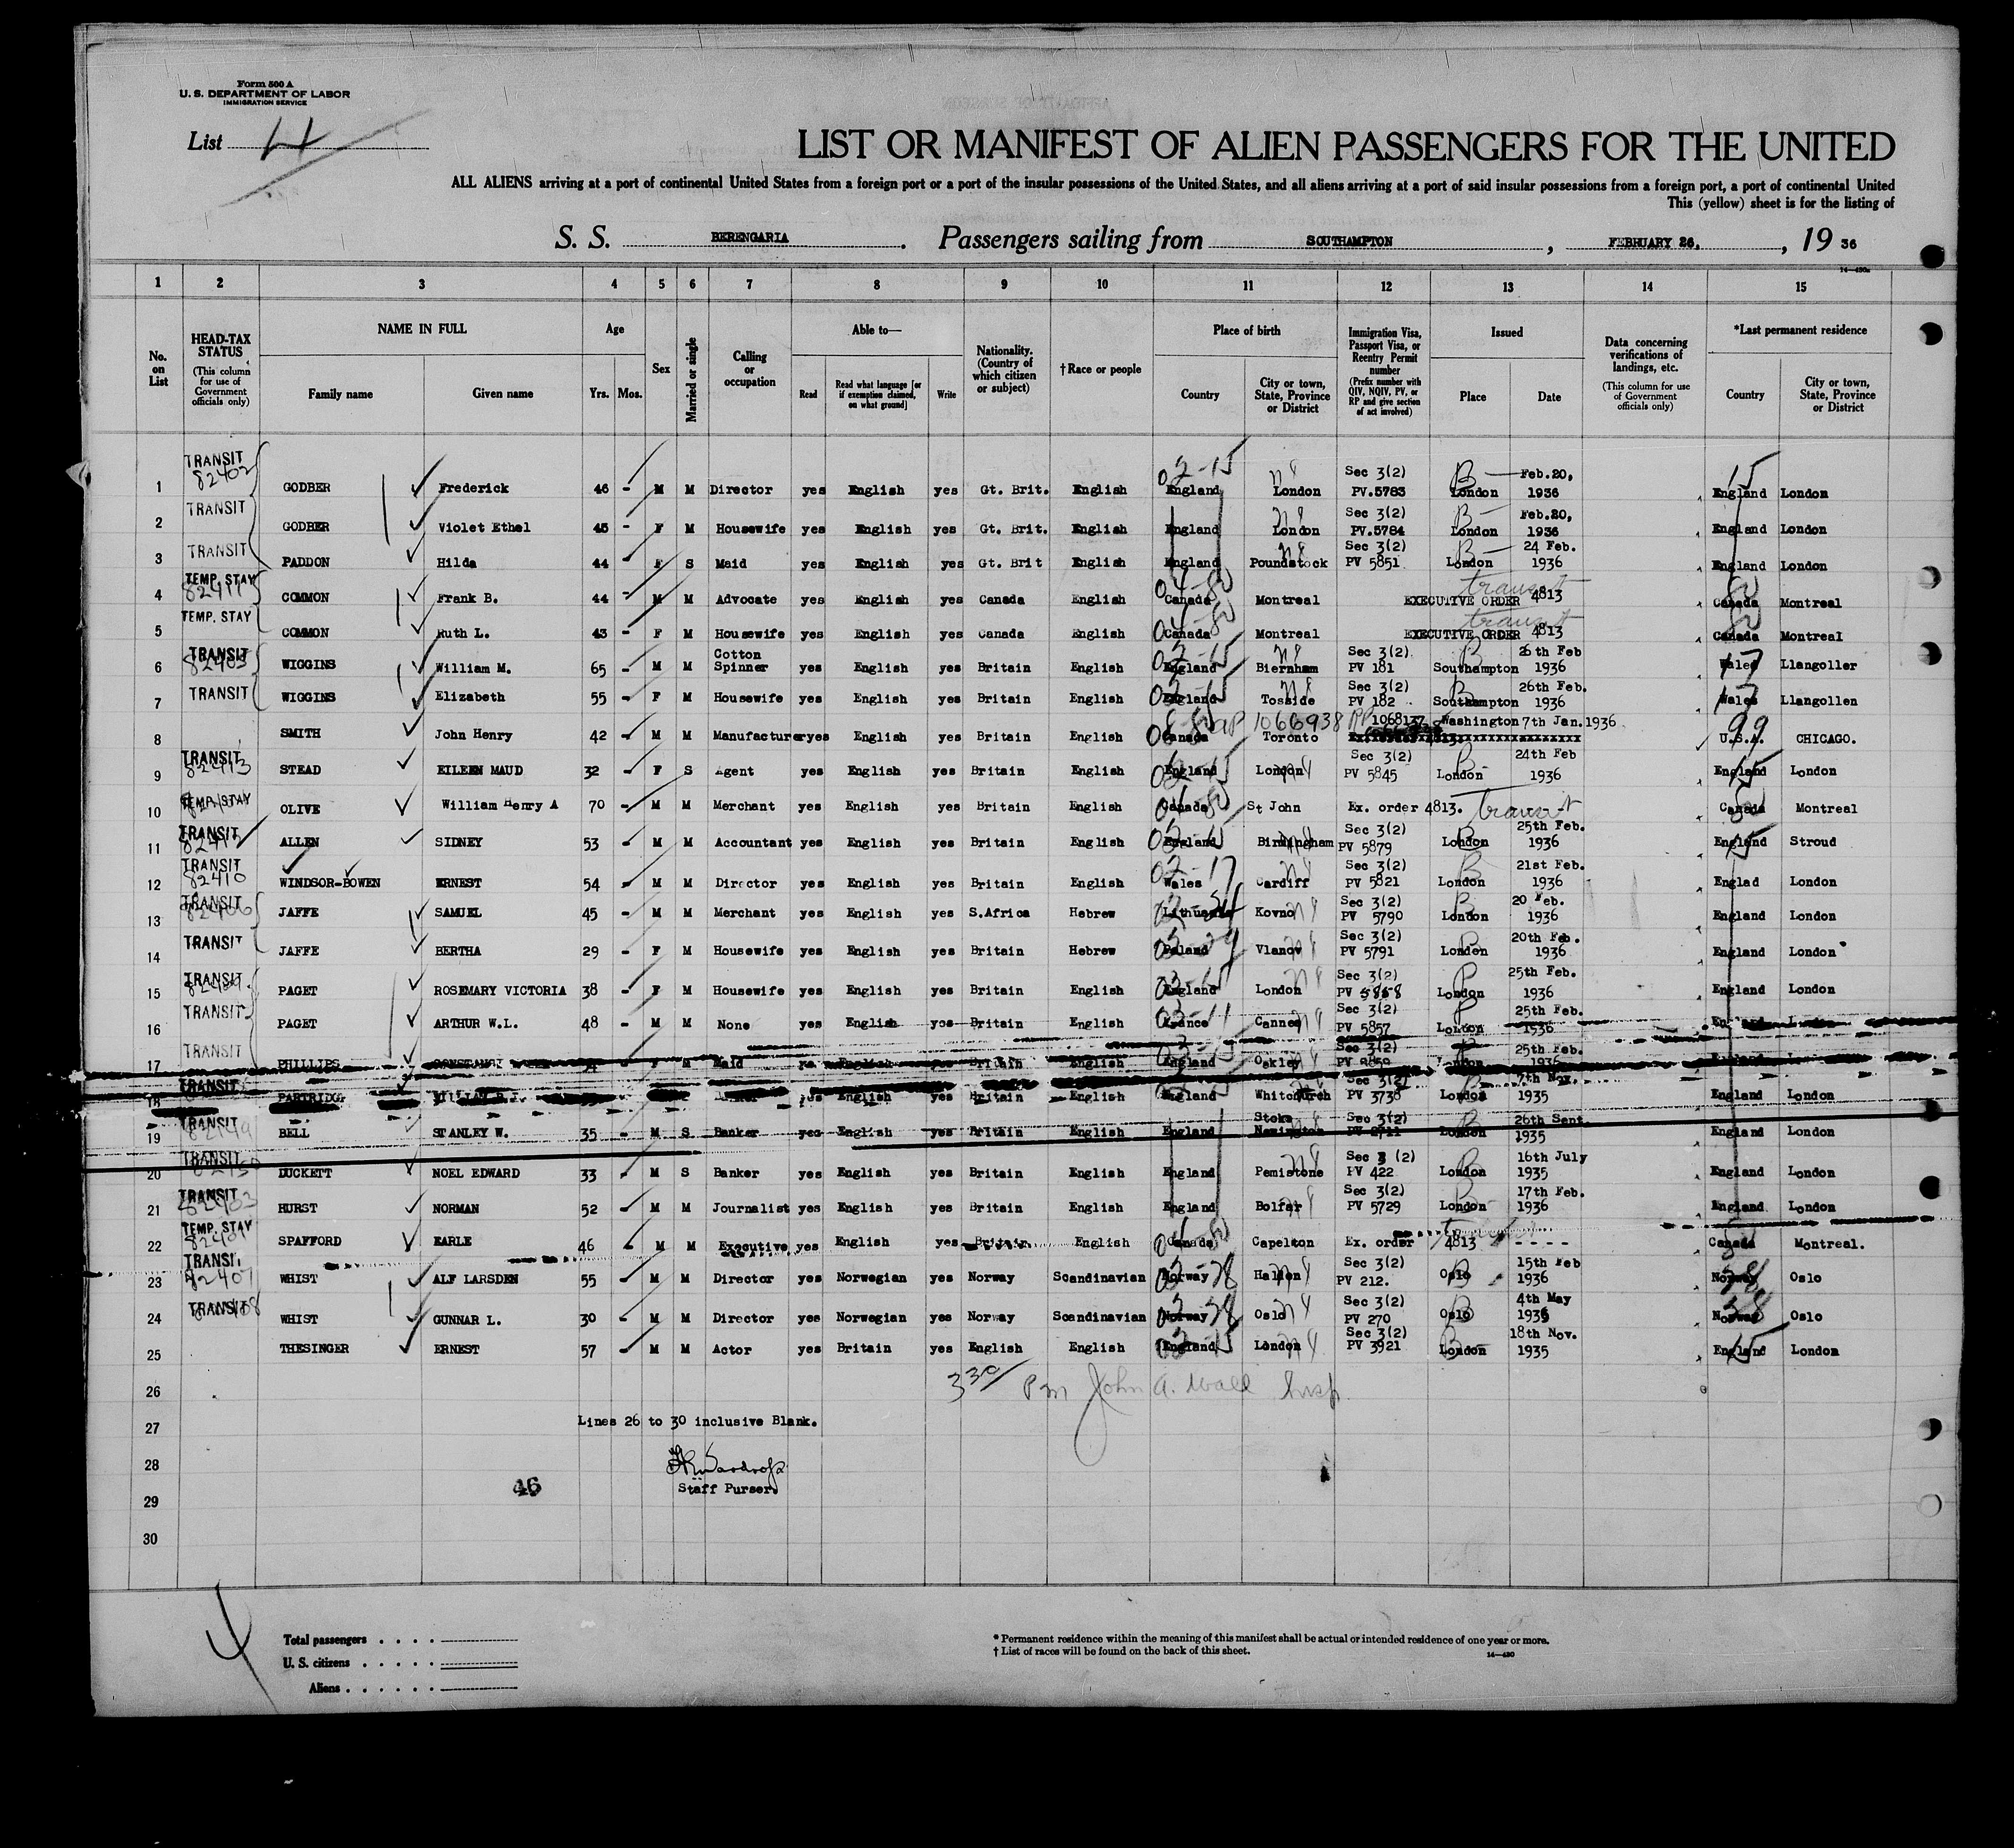 Form 500 A
U. S. DEPARTMENT OF LABOR
IMMIGRATION SERVICE
List 4
LIST OR MANIFEST OF ALIEN PASSENGERS FOR THE UNITED
ALL ALIENS arriving at a port of continental United States from a foreign port or a port of the insular possessions of the United States, and all aliens arriving at a port of said insular possessions from a foreign port, a port of continental United
This (yellow) sheet is for the listing of
S. S. BERENGARIA. Passengers sailing from SOUTHAMPTON, FEBRUARY 26, 19 36
1 2 3 4 5 6 7 8 9 10 11 12 13 14 15
No. on List
HEAD-TAX STATUS (This column for use of Government officials only)
NAME IN FULL Family name Given name
Age Yrs. Mos.
Sex
Married or single
Calling or occupation
Able to— Read Read what language [or if exemption claimed, on what ground] Write
Nationality. (Country of which citizen or subject)
†Race or people
Place of birth Country City or town, State, Province or District
Immigration Visa, Passport Visa, or Reentry Permit number (Prefix number with QIV, NQIV, PV, or RP and give section of act involved)
Issued Place Date
Data concerning verifications of landings, etc. (This column for use of Government officials only)
*Last permanent residence Country City or town, State, Province or District
1 TRANSIT 82402 GODBER Frederick 46 - M M Director yes English yes Gt. Brit. English England London Sec 3(2) PV.5783 London Feb.20, 1936 England London
2 TRANSIT GODBER Violet Ethel 45 - F M Housewife yes English yes Gt. Brit. English England London Sec 3(2) PV.5784 London Feb.20, 1936 England London
3 TRANSIT PADDON Hilda 44 F S Maid yes English yes Gt. Brit English England Poundstock Sec 3(2) PV 5851 London 24 Feb. 1936 England London
4 TEMP. STAY 82411 COMMON Frank B. 44 - M M Advocate yes English yes Canada English Canada Montreal transit EXECUTIVE ORDER 4813 Canada Montreal
5 TEMP. STAY COMMON Ruth L. 43 - F M Housewife yes English yes Canada English Canada Montreal transit EXECUTIVE ORDER 4813 Canada Montreal
6 TRANSIT WIGGINS William M. 65 - M M Cotton Spinner yes English yes Britain English England Biernham Sec 3(2) PV 181 Southampton 26th Feb 1936 Wales Llangoller
7 TRANSIT WIGGINS Elizabeth 55 - F M Housewife yes English yes Britain English England Tosside Sec 3(2) PV 182 Southampton 26th Feb. 1936 Wales Llangollen
8 SMITH John Henry 42 - M M Manufacturer yes English yes Britain English Canada Toronto 1066938 RP 1068137 Washington 7th Jan.1936 U.S.A. CHICAGO.
9 TRANSIT 82413 STEAD EILEEN MAUD 32 - F S Agent yes English yes Britain English England London Sec 3(2) PV 5845 London 24th Feb 1936 England London
10 TEMP. STAY OLIVE William Henry A 70 - M M Merchant yes English yes Britain English Canada St John Ex. order 4813. transit Canada Montreal
11 TRANSIT ALLEN SIDNEY 53 - M M Accountant yes English yes Britain English England Birmingham Sec 3(2) PV 5879 London 25th Feb. 1936 England Stroud
12 TRANSIT 82410 WINDSOR-BOWEN ERNEST 54 - M M Director yes English yes Britain English Wales Cardiff Sec 3(2) PV 5821 London 21st Feb. 1936 Englad London
13 TRANSIT 82406 JAFFE SAMUEL 45 - M M Merchant yes English yes S.Africa Hebrew Lithuania Kovno Sec 3(2) PV 5790 London 20 Feb. 1936 England London
14 TRANSIT JAFFE BERTHA 29 - F M Housewife yes English yes Britain Hebrew Poland Vlanov Sec 3(2) PV 5791 London 20th Feb. 1936 England London
15 TRANSIT PAGET ROSEMARY VICTORIA 38 - F M Housewife yes English yes Britain English England London Sec 3(2) PV 5858 London 25th Feb. 1936 England London
16 TRANSIT PAGET ARTHUR W.L. 48 - M M None yes English yes Britain English France Cannes Sec 3(2) PV 5857 London 25th Feb. 1936
17 TRANSIT PHILLIPS F M Maid English Britain English England Oakley Sec 3(2) London 25th Feb. 1936
18 TRANSIT yes English yes Britain English England Whitchurch Sec 3(2) PV 3738 London 7th Nov. 1935 England London
19 TRANSIT BELL STANLEY W. 35 - M S Banker yes English yes Britain English England Stoke Newington Sec 3(2) PV 2711 London 26th Sept 1935 England London
20 TRANSIT DUCKETT NOEL EDWARD 33 - M S Banker yes English yes Britain English England Pemistone Sec 3 (2) PV 422 London 16th July 1935 England London
21 TRANSIT 82403 HURST NORMAN 52 - M M Journalist yes English yes Britain English England Bolfar Sec 3(2) PV 5729 London 17th Feb. 1936 England London
22 TEMP. STAY SPAFFORD EARLE 46 - M M Executive yes English yes Britain English Canada Capelton Ex. order 4813 - - - - Canada Montreal.
23 TRANSIT 82407 WHIST ALF LARSDEN 55 - M M Director yes Norwegian yes Norway Scandinavian Norway Halden Sec 3(2) PV 212. Oslo 15th Feb 1936 Norway Oslo
24 TRANSIT WHIST GUNNAR L. 30 - M M Director yes Norwegian yes Norway Scandinavian Norway Oslo Sec 3(2) PV 270 Oslo 4th May 1935 Norway Oslo
25 THESINGER ERNEST 57 - M M Actor yes Britain yes English English England London Sec 3(2) PV 3921 London 18th Nov. 1935 England London
26 330/ Pm John A. Wall Insp.
27 Lines 26 to 30 inclusive Blank.
28
29 46 Staff Purser.
30
4
Total passengers . . . .
U. S. citizens . . . . .
Aliens . . . . . .
* Permanent residence within the meaning of this manifest shall be actual or intended residence of one year or more.
† List of races will be found on the back of this sheet.
14—430